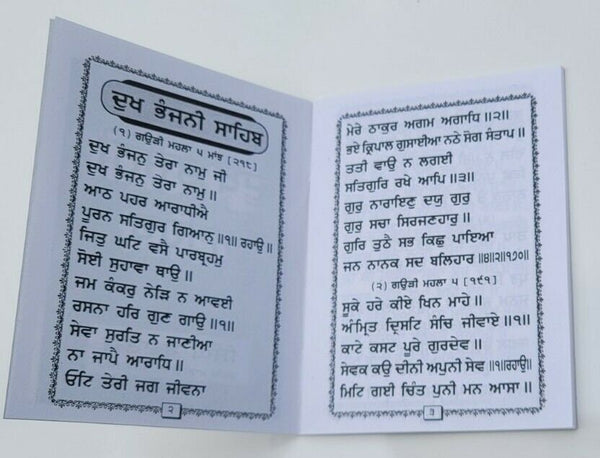 ਦੁਖ ਭੰਜਨੀ ਸਾਹਿਬ
(੧) ਗਉੜੀ ਮਹਲਾ ੫ ਮਾਂਝ [੨੧੮]
ਦੁਖ ਭੰਜਨੁ ਤੇਰਾ ਨਾਮੁ ਜੀ
ਦੁਖ ਭੰਜਨੁ ਤੇਰਾ ਨਾਮੁ॥
ਆਠ ਪਹਰ ਆਰਾਧੀਐ
ਪੂਰਨ ਸਤਿਗੁਰ ਗਿਆਨੁ॥੧॥ ਰਹਾਉ॥
ਜਿਤੁ ਘਟਿ ਵਸੈ ਪਾਰਬ੍ਰਹਮੁ
ਸੋਈ ਸੁਹਾਵਾ ਥਾਉ॥
ਜਮ ਕੰਕਰੁ ਨੇੜਿ ਨ ਆਵਈ
ਰਸਨਾ ਹਰਿ ਗੁਣ ਗਾਉ॥੧॥
ਸੇਵਾ ਸੁਰਤਿ ਨ ਜਾਣੀਆ
ਨਾ ਜਾਪੈ ਆਰਾਧਿ॥
ਓਟਿ ਤੇਰੀ ਜਗ ਜੀਵਨਾ
੨
ਮੇਰੇ ਠਾਕੁਰ ਅਗਮ ਅਗਾਧਿ॥੨॥
ਭਏ ਕ੍ਰਿਪਾਲ ਗੁਸਾਈਆ ਨਠੇ ਸੋਗ ਸੰਤਾਪ॥
ਤਤੀ ਵਾਉ ਨ ਲਗਈ
ਸਤਿਗੁਰਿ ਰਖੇ ਆਪਿ॥੩॥
ਗੁਰੁ ਨਾਰਾਇਣੁ ਦਯੁ ਗੁਰੁ
ਗੁਰੁ ਸਚਾ ਸਿਰਜਣਹਾਰੁ॥
ਗੁਰਿ ਤੁਠੈ ਸਭ ਕਿਛੁ ਪਾਇਆ
ਜਨ ਨਾਨਕ ਸਦ ਬਲਿਹਾਰ॥੪॥੨॥੧੭੦॥
(੨) ਗਉੜੀ ਮਹਲਾ ੫ [੧੯੧]
ਸੂਕੇ ਹਰੇ ਕੀਏ ਖਿਨ ਮਾਹੇ॥
ਅੰਮ੍ਰਿਤ ਦ੍ਰਿਸਟਿ ਸੰਚਿ ਜੀਵਾਏ॥੧॥
ਕਾਟੇ ਕਸਟ ਪੂਰੇ ਗੁਰਦੇਵ॥
ਸੇਵਕ ਕਉ ਦੀਨੀ ਅਪੁਨੀ ਸੇਵ॥੧॥ਰਹਾਉ॥
ਮਿਟਿ ਗਈ ਚਿੰਤ ਪੁਨੀ ਮਨ ਆਸਾ॥
੩